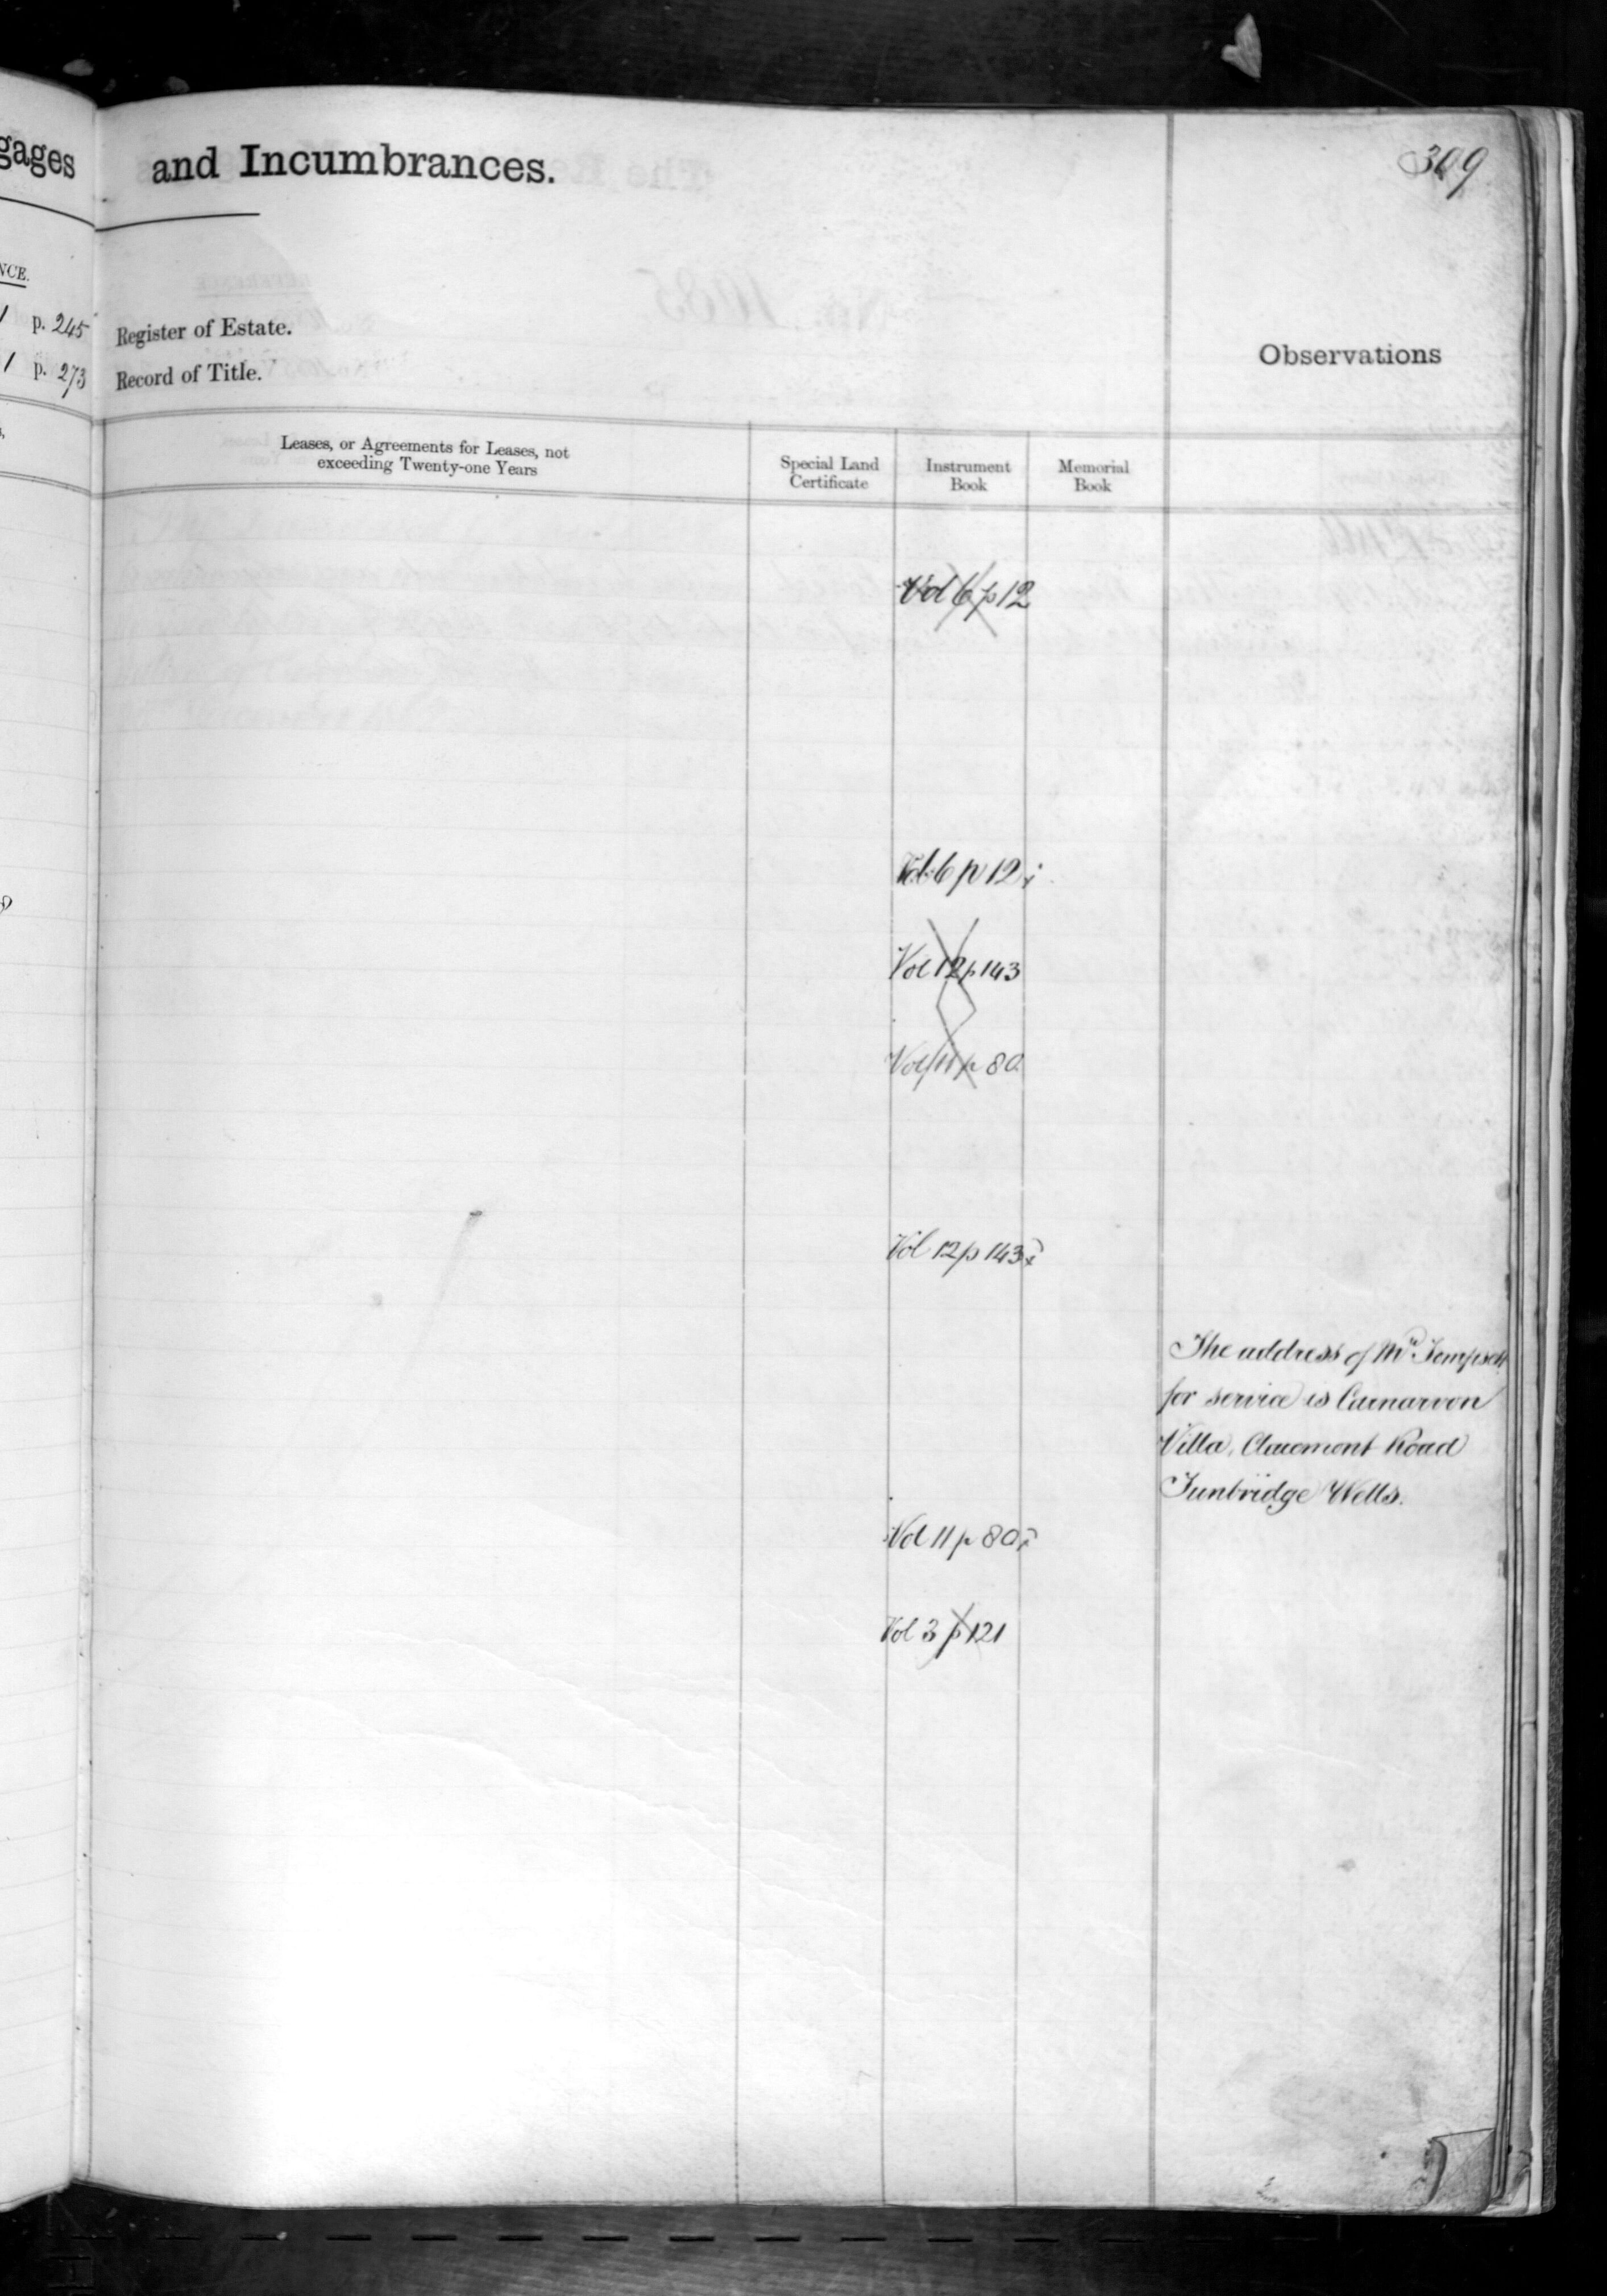 gages
and Incumbrances.
309
NCE.
p. 245
Register of Estate.
p. 273
Record of Title.
Observations
Leases, or Agreements for Leases, not
exceeding Twenty-one Years
Special Land
Certificate
Instrument
Book
Memorial
Book
Vol 6 p 12
Vol. 6 p 12 i
Vol 12 p 143
Vol 11 p 80
Vol 12 p 143 i
The address of Mr Tompsett
for service is Carnarvon
Villa, Claremont Road
Tunbridge Wells.
Vol 11 p 80 i
Vol 3 p 121